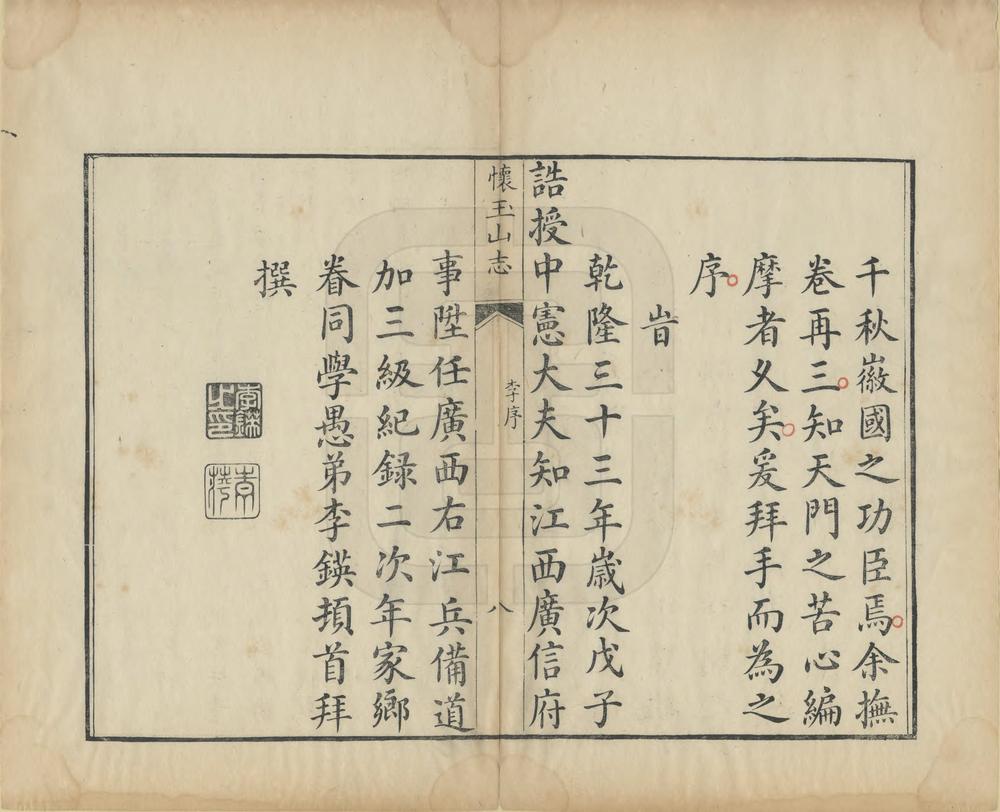 千秋徽國之功臣焉余撫
卷再三知天門之苦心編
摩者久矣爰拜手而為之
序
旹
乾隆三十三年歲次戊子
誥授中憲大夫知江西廣信府
懷玉山志
李序
八
事陞任廣西右江兵備道
加三級紀録二次年家鄉
眷同學愚弟李鍈頓首拜
撰
李鍈之印